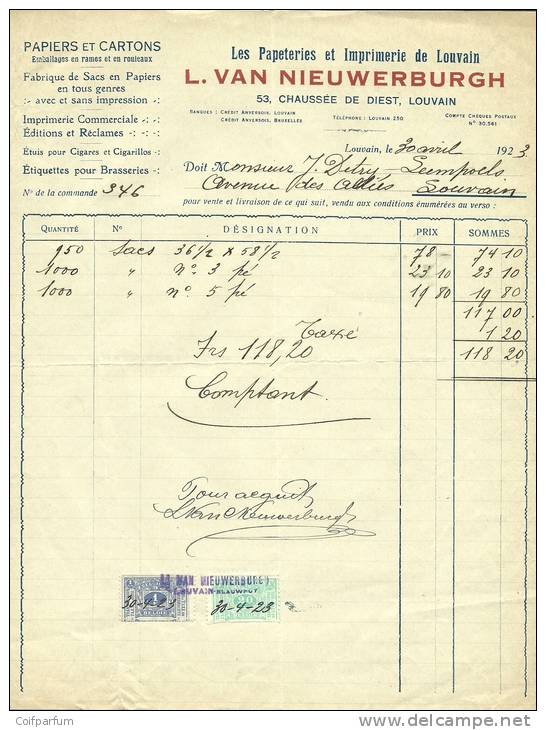 PAPIERS ET CARTONS
Emballages en rames et en rouleaux
Fabrique de Sacs en Papiers
en tous genres
:- avec et sans impression -:
Imprimerie Commerciale -:- -:
Éditions et Réclames -:- -:-
Étuis pour Cigares et Cigarillos -:
Étiquettes pour Brasseries -:
N° de la commande 346
Les Papeteries et Imprimerie de Louvain
L. VAN NIEUWERBURGH
53, CHAUSSÉE DE DIEST, LOUVAIN
BANQUES : CRÉDIT ANVERSOIS, LOUVAIN
CRÉDIT ANVERSOIS, BRUXELLES
TÉLÉPHONE : LOUVAIN 250
COMPTE CHÈQUES POSTAUX
N° 30.561
Louvain, le 30 avril 1923
Doit Monsieur J. Detry Leempoels
Avenue des Alliés Louvain
pour vente et livraison de ce qui suit, vendu aux conditions énumérées au verso :
QUANTITÉ N° DÉSIGNATION PRIX SOMMES
950 Sacs 36 1/2 x 58 1/2 78 - 74 10
1000 " n° 3 pé 23 10 23 10
1000 " n° 5 pé 19 80 19 80
117 00
1 20
118 20
Taxe
Frs 118,20
Comptant.
Pour acquit
L Van Nieuwerburgh
L. VAN NIEUWERBURGH
LOUVAIN-BLAUWPUT
1
BELGIË
30-4-23
20
30-4-23
Coifparfum
http://www.delcampe.net